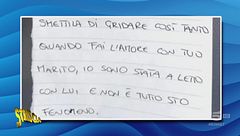 SMETTILA DI GRIDARE COSÌ TANTO
QUANDO FAI L'AMORE CON TUO
MARITO, IO SONO STATA A LETTO
CON LUI E NON È TUTTO STO
FENOMENO.